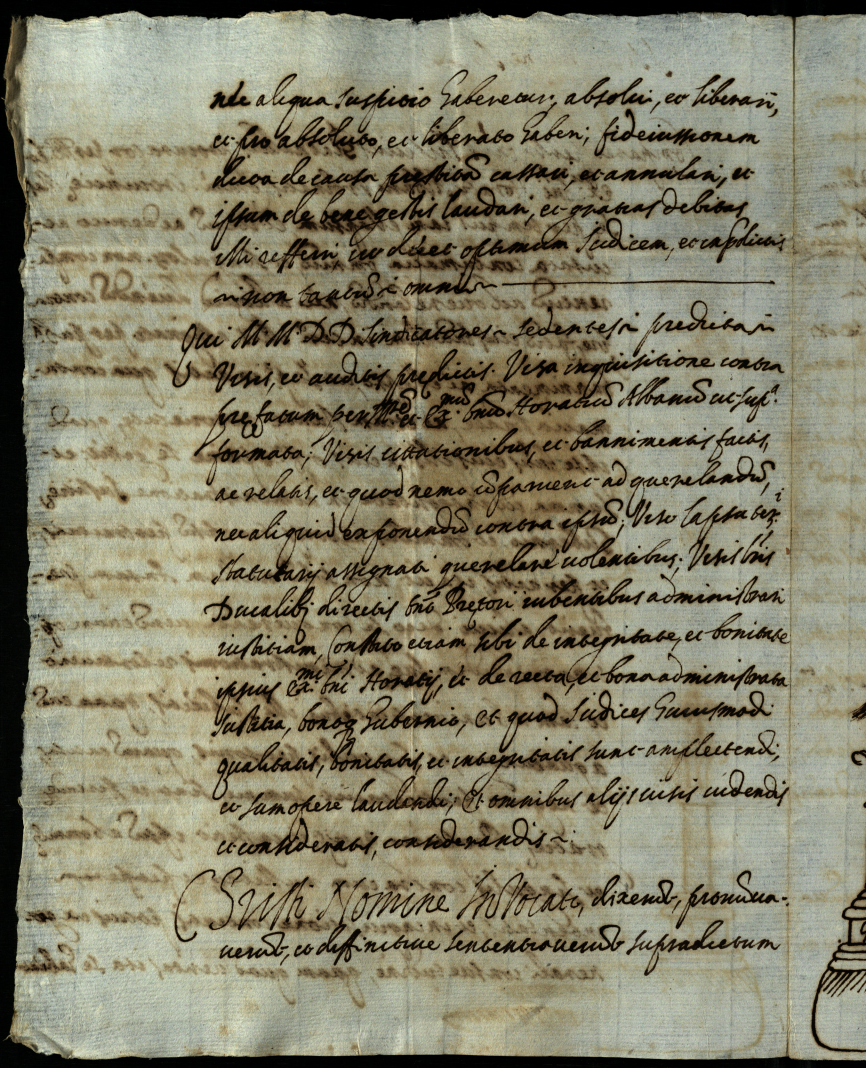 nec aliqua suspicio haberetur, absolui, et liberari,
et pro absoluto, et liberato haberi; fideiussionem
dicta de causa prestitā cassari, et annulari, et
ipsum de bene gestis laudari, et gratias debitas
illi refferri ut decet optimum Iudicem, et in p̄dictis
non tantū omni
Qui M. M. D. D. Sindicatores sedentes predicta
Visis, et auditis predictis. Visa inquisitione contra
prefatum per et Ex.mū D̄num Horatiū Albanū ut sup.a
formata; Visis cittationibus, et bannimentis factis,
ac relatis, et quod nemo cōparuerit ad querelandū,
nec aliquid exponendū contra ipsū; Viso lapsu ter.i
statutarij assignati querelare uolentibus; Visis l̄ris
Ducalibus directis Pretori iubentibus administrari
iustitiam, Constito etiam sibi de integritate, et bonitate
ipsius Ex.mi D̄ni Horatij, et de recta, et bona administrata
Iustitia, bonoq3 Gubernio, et quod Iudices huiusmodi
qualitatis, bonitatis, et integritatis sunt amplectendi,
et sumopere laudandi; Et omnibus alijs uisis uidendis
et consideratis, considerandis
Cristi Nomine Inuocato, dixerūt, pronūcia-
uerūt, et diffinitiue sententiauerūt supradictum